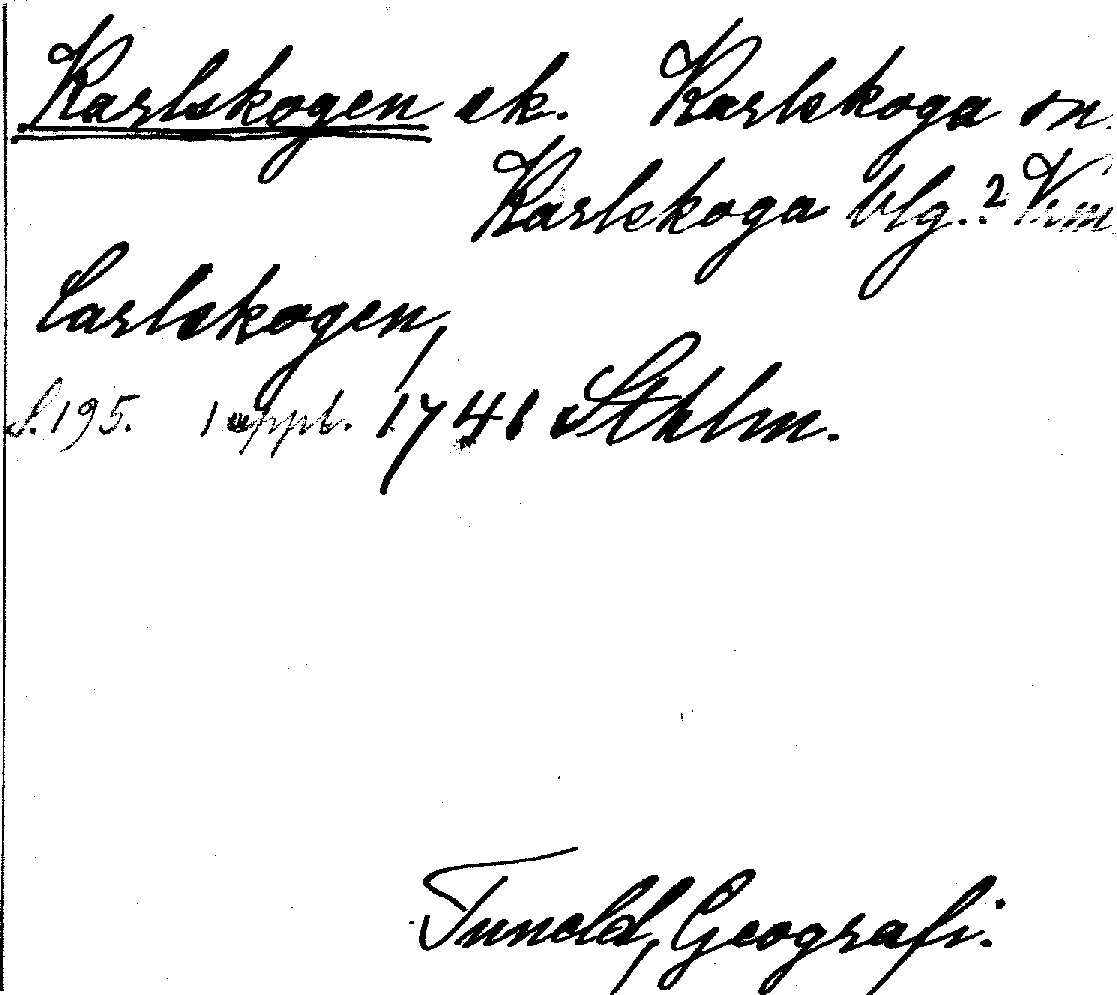 Karlskogen sk. Karlskoga sn.
Karlskoga blg.? Vrm
Carlskogen,
S. 195. 1 uppl. 1741 Sthlm.
Tuneld, Geografi.